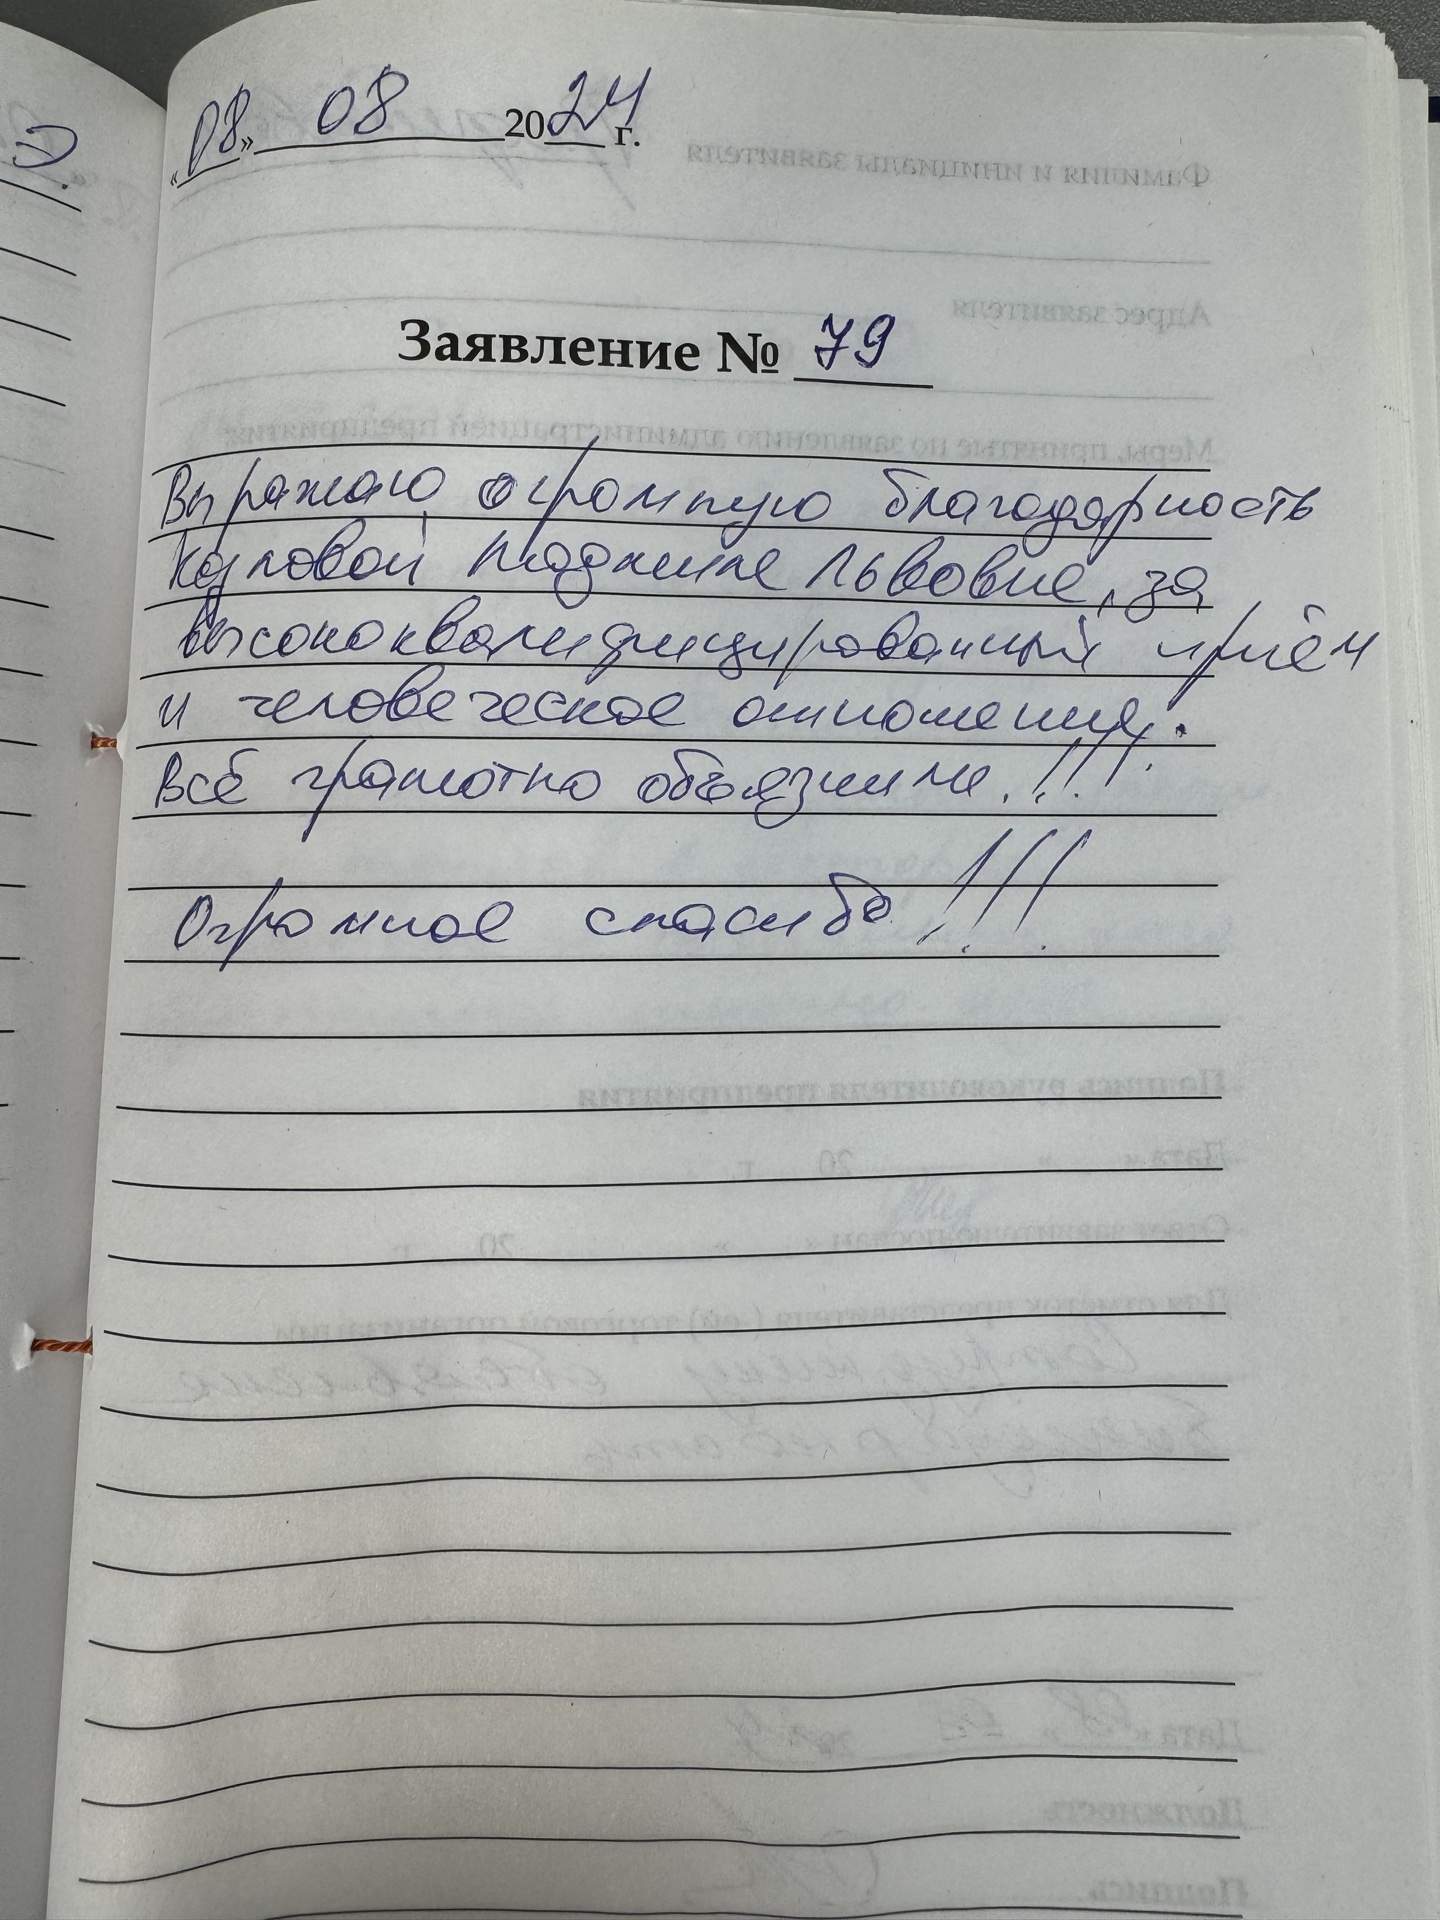 «08» 08 2024 г.
Заявление № 79
Выражаю огромную благодарность
Львовне, за
высококвалифицированный приём
и человеческое отношение.
Всё грамотно объяснили!!!
Огромное спасибо!!!